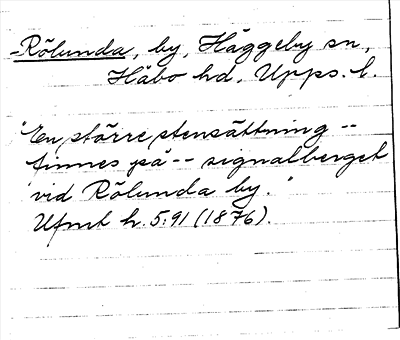 -Rölunda, by, Häggeby sn,
Håbo hd, Upps. l.
"En större stensättning --
finnes på -- signalberget
vid Rölunda by."
Ufmt h. 5:91 (1876).